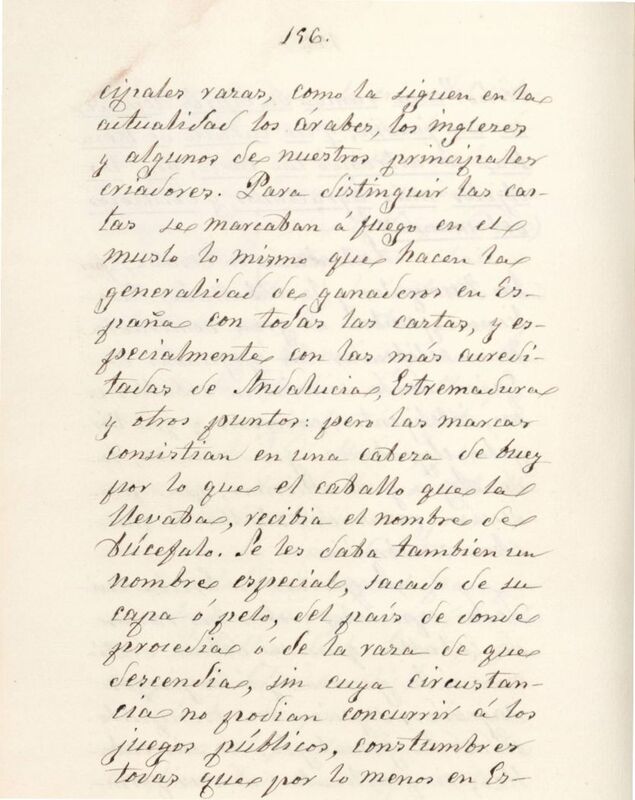 156.
cipales razas, como la siguen en la
actualidad los árabes, los inglezes
y algunos de nuestros principales
criadores. Para distinguir las cas-
tas se marcaban á fuego en el
muslo lo mismo que hacen la
generalidad de ganaderos en Es-
paña con todas las castas, y es-
pecialmente con las más acredi-
tadas de Andalucia, Estremadura
y otros puntos: pero las marcas
consistian en una cabeza de buey
por lo que el caballo que la
llevaba, recibia el nombre de
Búcefalo. Se les daba tambien un
nombre especial, sacado de su
capa ó pelo, del país de donde
procedia ó de la raza de que
descendia, sin cuya circustan-
cia no podian concurrir á los
juegos públicos, constumbres
todas que por lo menos en Es-